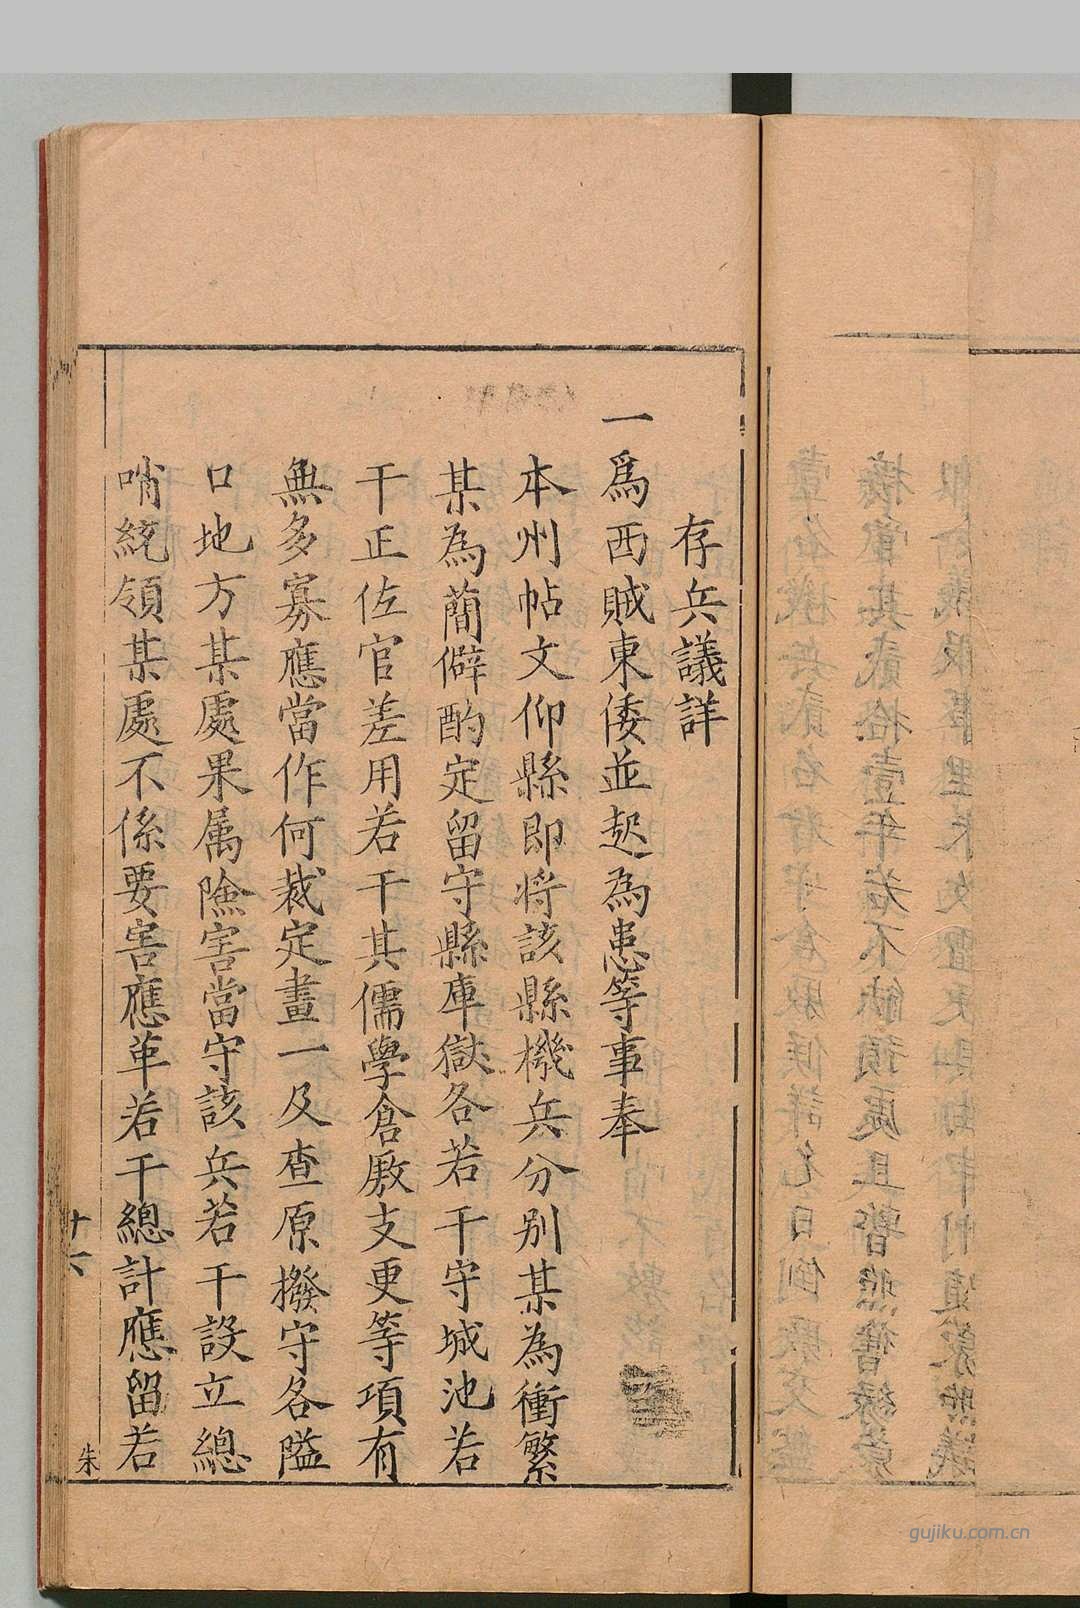 存兵議詳
一為西賊東倭並起為患等事奉
本州帖文仰縣即将該縣機兵分别某為衝繁
某為蕳僻酌定留守縣庫獄各若干守城池若
干正佐官差用若干其儒學倉厫支更等項有
無多寡應當作何裁定畫一及查原撥守各隘
口地方某處果属險害當守該兵若干設立總
哨統領某處不係要害應革若干總計應留若
十六
朱
gujiku.com.cn